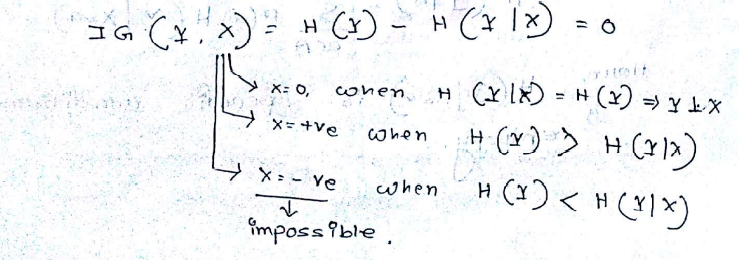 IG (Y, X) = H (Y) - H (Y | X) = 0
X = 0, when H (Y | X) = H (Y) ⇒ Y ⊥ X
X = +ve when H (Y) > H (Y | X)
X = - ve when H (Y) < H (Y | X)
impossible.